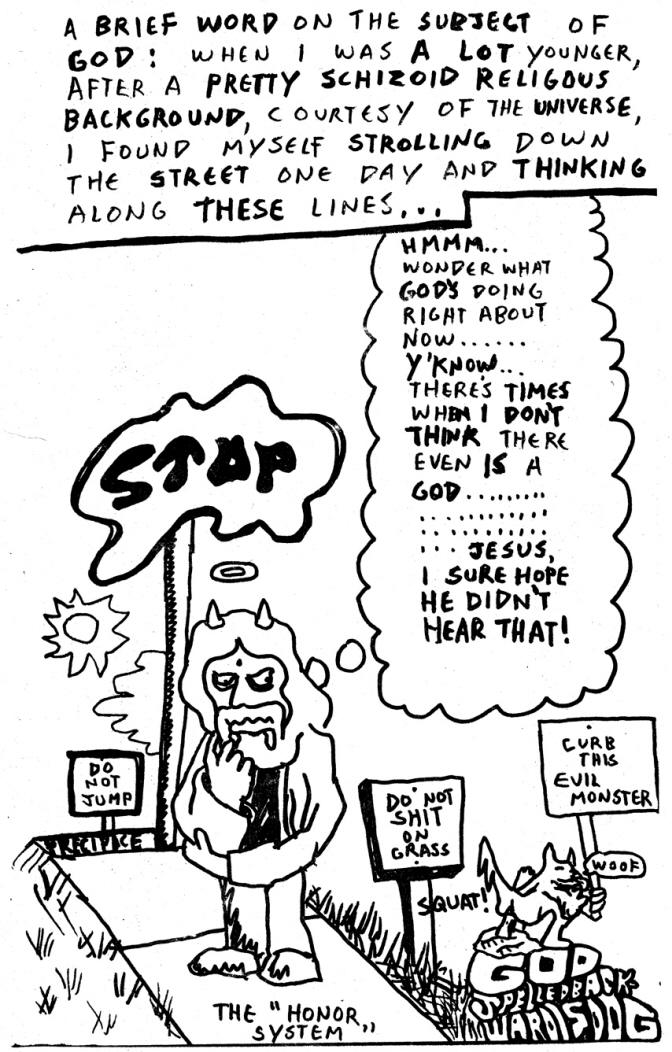 A BRIEF WORD ON THE SUBJECT OF
GOD: WHEN I WAS A LOT YOUNGER,
AFTER A PRETTY SCHIZOID RELIGOUS
BACKGROUND, COURTESY OF THE UNIVERSE,
I FOUND MYSELF STROLLING DOWN
THE STREET ONE DAY AND THINKING
ALONG THESE LINES...
HMMM...
WONDER WHAT
GOD'S DOING
RIGHT ABOUT
NOW......
Y'KNOW...
THERE'S TIMES
WHEN I DON'T
THINK THERE
EVEN IS A
GOD.........
............
............
... JESUS,
I SURE HOPE
HE DIDN'T
HEAR THAT!
STOP
DO
NOT
JUMP
PRECIPICE
DO NOT
SHIT
ON
GRASS
CURB
THIS
EVIL
MONSTER
WOOF
SQUAT!
GOD
SPELLED BACK-
WARD IS DOG
THE "HONOR
SYSTEM"